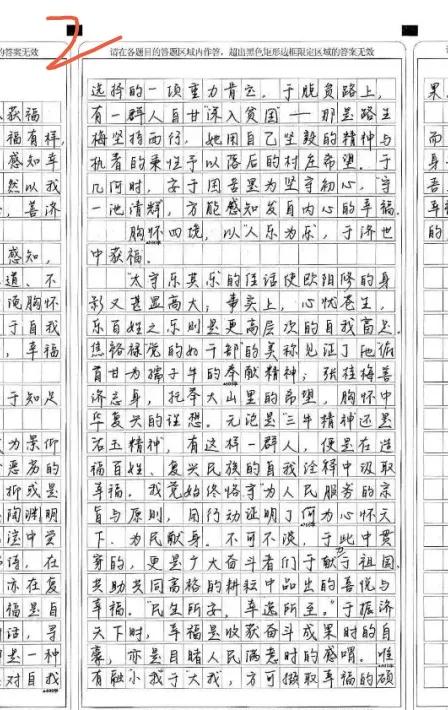 请在各题目的答题区域内作答，超出黑色矩形边框限定区域的答案无效
选择的一项重力肯云，于脱贫路上，
有一群人自甘“深入贫困”——那是路生
梅坚持西行，她用自己坚毅的精神与
执着的秉性予以落后的村庄希望。于
几何时，安于困苦里为坚守初心，“守
一池清辉，方能感知发自内心的幸福。
胸怀四境，以“人乐为乐”，于济世
中获福。
“太守乐其乐”的佳话使欧阳修的身
影又甚显高大；事实上，心忧苍生，
乐百姓之乐则是更高层次的自我富足。
焦裕禄“党的好干部”的美称见证了他俯
首甘为孺子牛的奉献精神；张桂梅善
济志身，托举大山里的希望，胸怀中
华复兴的理想。无论是“三牛精神”还是
有这样一群人，便是在造
福百姓、复兴民族的自我诠释中汲取
幸福。我党始终恪守“为人民服务”的宗
旨与原则，用行动证明了何为心怀天
下、为民献身。不可不谈，于此中贯
穿的，更是广大奋斗者们于献力于祖国、
共助共同富裕的耕耘中品出的喜悦与
幸福。“民生所安，幸逸所至。”于振济
天下时，幸福是收获奋斗成果时的自
豪，亦是目睹人民满意时的感喟。唯
有融“小我”于“大我”，方可撷取幸福的硕
的答案无效
获福
福有样，
感知幸
然以我
，善济
感知，
道、不
怀
于自我
，幸福
于知足
为景仰
恶劣的
抑或是
陶渊明
法中爱
语，在
亦在复
福是自
活，寻
是一种
对自我
请
果